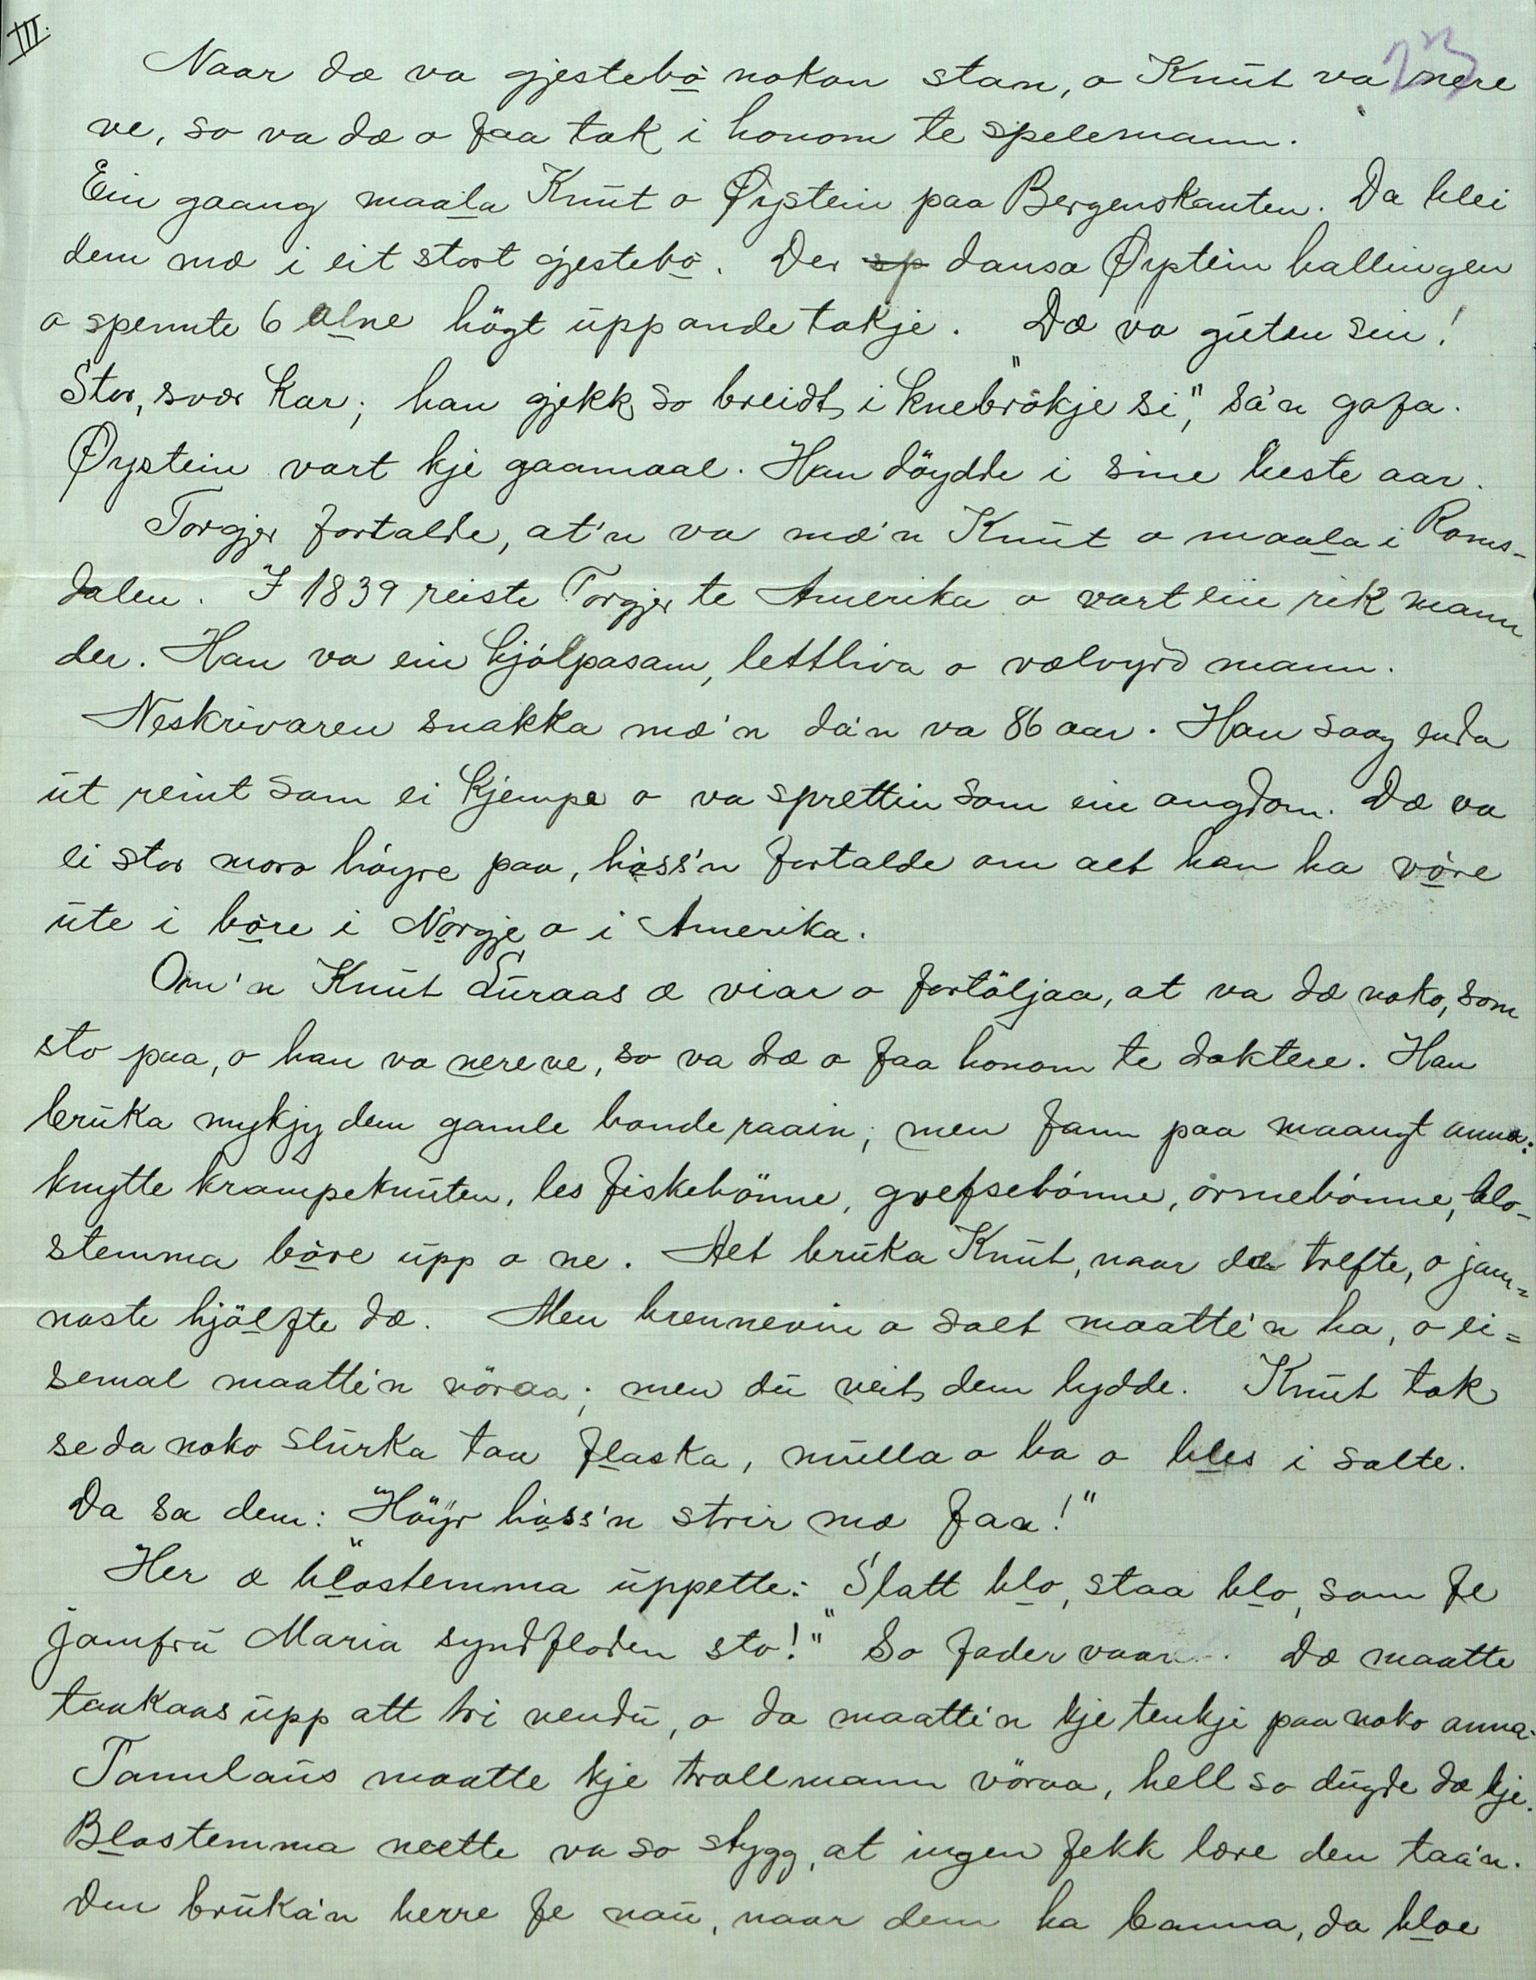 III.
23
Naar dæ va gjestebò nokon stan, o Knut va nere
ve, so va dæ o faa tak i honom te spelemann.
Ein gaang maala Knut o Øystein paa Bergenskanten. Da blei
dem mæ i eit stort gjestebò. Der sp dansa Øystein hallingen
o spennte 6 alne högt upp ande takje. Dæ va guten sin!
Stor, svær kar; han gjekk so breidt i "knebrökje si," sa'n gofa.
Øystein vart kje gaamaal. Han döydde i sine beste aar.
Torgjer fortalde, at'n va mæ'n Knut o maala i Roms-
dalen. I 1839 reiste Torgjer te Amerika o vart ein rik mann
der. Han va ein hjólpasam, lettliva o vælvyrd mann.
Neskrivaren snakka mæ'n da'n va 86 aar. Han saag enda
ut reint som ei kjempe o va sprettin som ein ongdom. Dæ va
ei stor moro höyre paa, hòss'n fortalde om alt han ha vòre
ute i bòre i Nòrgje o i Amerika.
Om'n Knut Suraas æ viar o fortöljaa, at va dæ noko, som
sto paa, o han va nere ve, so va dæ o faa honom te doktere. Han
bruka mykjy dem gamle bonderaain; men fann paa maangt anna:
knytte krampeknuten, les fiskebönne, grefsebónne, òrmebónne, blo-
stemma bòre upp o ne. Alt bruka Knut, naar dæ trefte, o jam=
naste hjälfte dæ. Men brennevin o salt maatte'n ha, o ei=
semal maatte'n vöraa; men du veit, dem lydde. Knut tok
se da noko slurka taa flaska, mulla o ba o bles i salte.
Da sa dem: "Höyr hòss'n strir mæ faa!"
Her æ blostemma uppette: "Statt blo, staa blo, som fe
jomfru Maria syndfloden sto!" So fader vaar. Dæ maatte
taakaas upp att tri vendu, o da maatte'n kje tenkje paa noko anna.
Tannlaus maatte kje trollmann vöraa, hell so dugde dæ kje.
Blostemma neette va so stygg, at ingen fekk lære den taa'n.
Den bruka'n herre fe nau, naar dem ha banna, da bloe